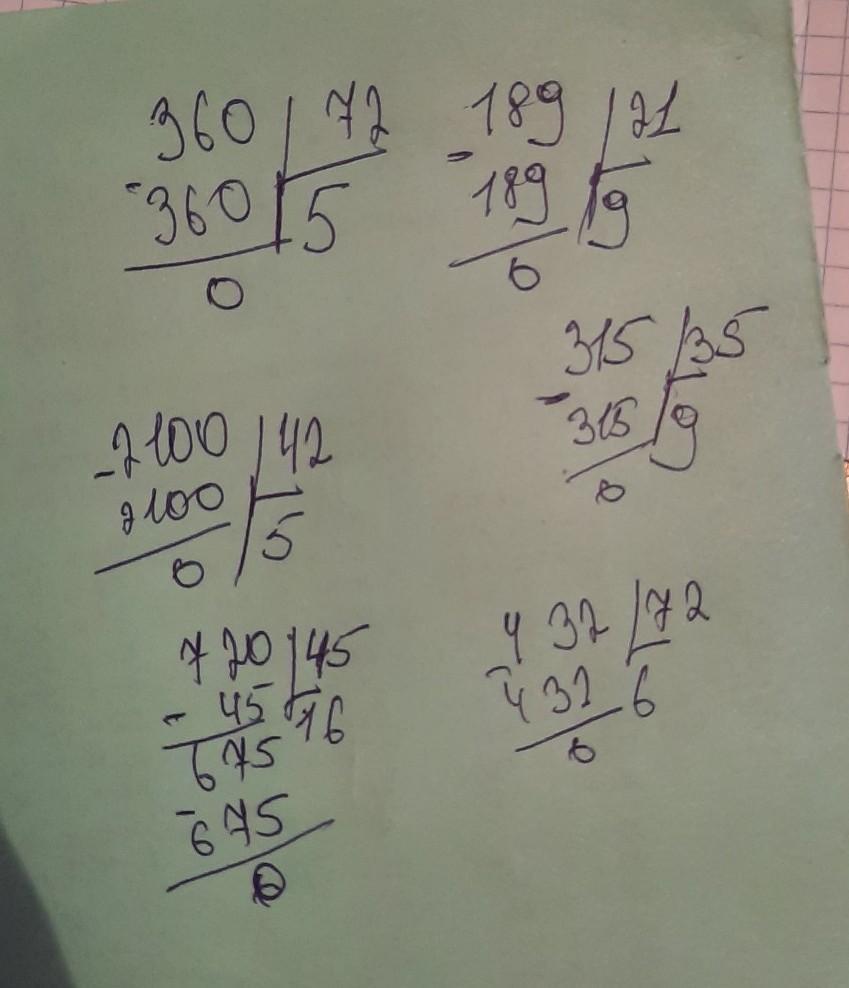 360 72
-360 5
0
189 21
-189 9
0
315 35
-315 9
0
-2100 42
2100 5
0
720 45
-45 16
675
-675
0
432 72
-432 6
0